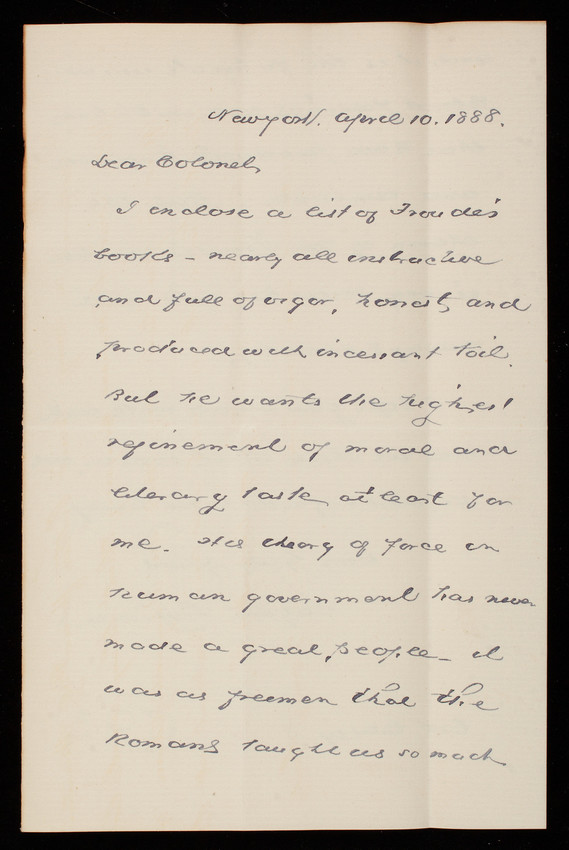 Newyork. April 10. 1888.
Dear Colonel,
I enclose a list of Froude's
books - nearly all instructive
and full of vigor, honest, and
produced with incessant toil.
But he wants the highest
refinement of moral and
literary taste, at least for
me. His theory of force in
human government has never
made a great people - it
was as freemen that the
Romans taught us so much